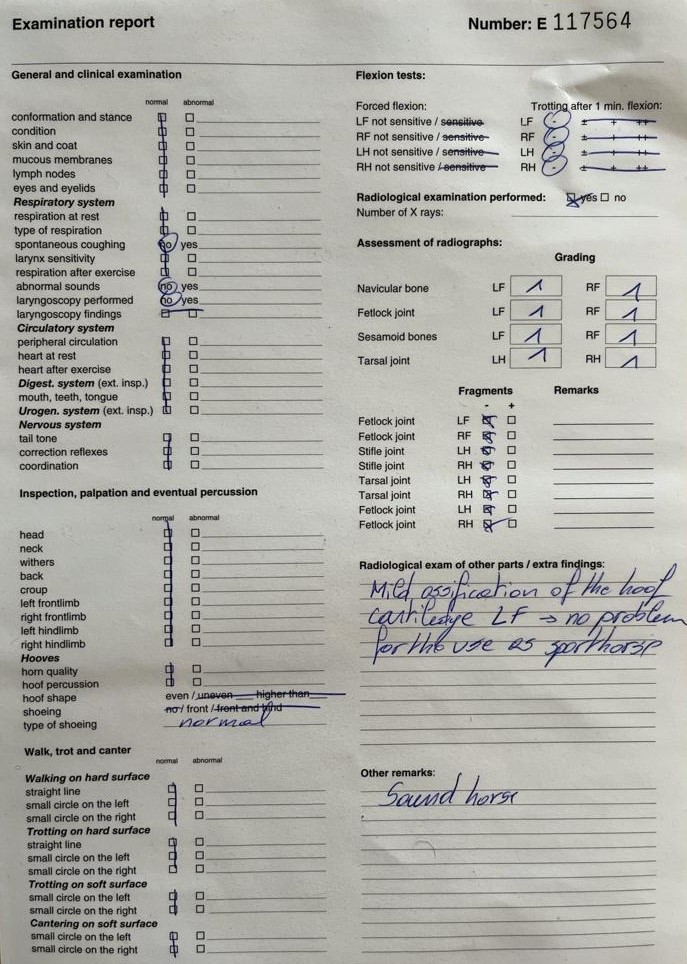 Examination report
Number: E 117564
General and clinical examination
normal abnormal
conformation and stance
condition
skin and coat
mucous membranes
lymph nodes
eyes and eyelids
Respiratory system
respiration at rest
type of respiration
spontaneous coughing no yes
larynx sensitivity
respiration after exercise
abnormal sounds no yes
laryngoscopy performed no yes
laryngoscopy findings
Circulatory system
peripheral circulation
heart at rest
heart after exercise
Digest. system (ext. insp.)
mouth, teeth, tongue
Urogen. system (ext. insp.)
Nervous system
tail tone
correction reflexes
coordination
Inspection, palpation and eventual percussion
normal abnormal
head
neck
withers
back
croup
left frontlimb
right frontlimb
left hindlimb
right hindlimb
Hooves
horn quality
hoof percussion
hoof shape even / uneven higher than
shoeing no / front / front and hind
type of shoeing normal
Walk, trot and canter
normal abnormal
Walking on hard surface
straight line
small circle on the left
small circle on the right
Trotting on hard surface
straight line
small circle on the left
small circle on the right
Trotting on soft surface
small circle on the left
small circle on the right
Cantering on soft surface
small circle on the left
small circle on the right
Flexion tests:
Forced flexion: Trotting after 1 min. flexion:
LF not sensitive / sensitive LF - ± + ++
RF not sensitive / sensitive RF - ± + ++
LH not sensitive / sensitive LH - ± + ++
RH not sensitive / sensitive RH - ± + ++
Radiological examination performed: yes no
Number of X rays:
Assessment of radiographs:
Grading
Navicular bone LF 1 RF 1
Fetlock joint LF 1 RF 1
Sesamoid bones LF 1 RF 1
Tarsal joint LH 1 RH 1
Fragments Remarks
- +
Fetlock joint LF
Fetlock joint RF
Stifle joint LH
Stifle joint RH
Tarsal joint LH
Tarsal joint RH
Fetlock joint LH
Fetlock joint RH
Radiological exam of other parts / extra findings:
Mild ossification of the hoof
cartiledge LF → no problem
for the use as sporthorse
Other remarks:
Sound horse